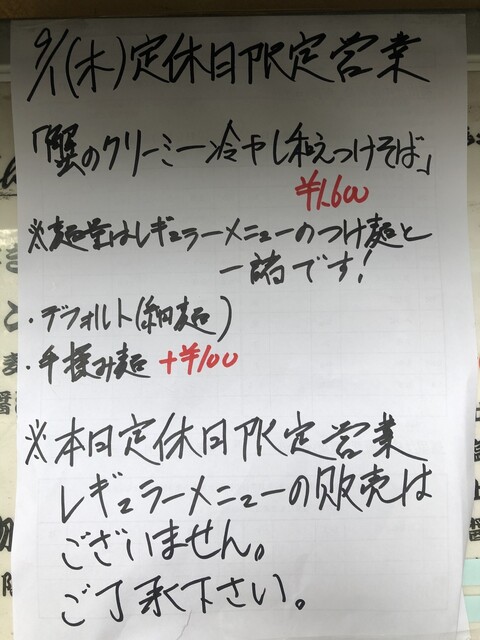 9/1(木)定休日限定営業
「蟹のクリーミー冷やし和えつけそば」
¥1,600
※麺量はレギュラーメニューのつけ麺と
一緒です!
・デフォルト(細麺)
・手揉み麺 +¥100
※本日定休日限定営業
レギュラーメニューの販売は
ございません。
ご了承下さい。